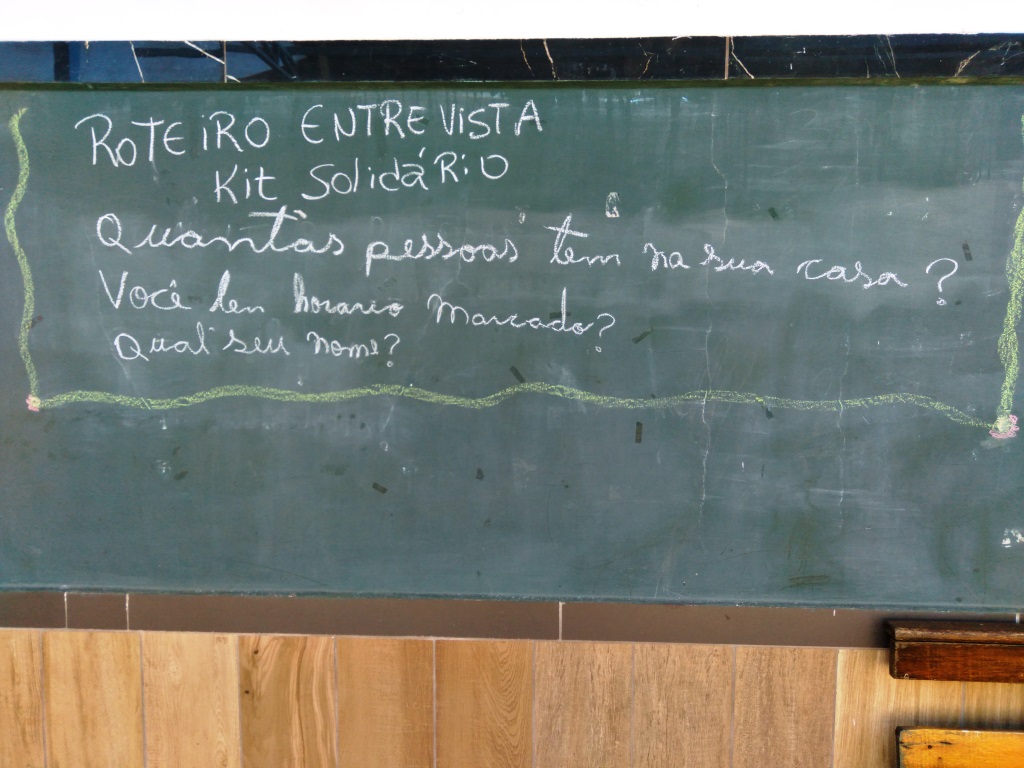 ROTEIRO ENTREVISTA
Kit SolidáRiO
Quantas pessoas tem na sua casa?
Você ten horario Marcado?
Qual seu nome?